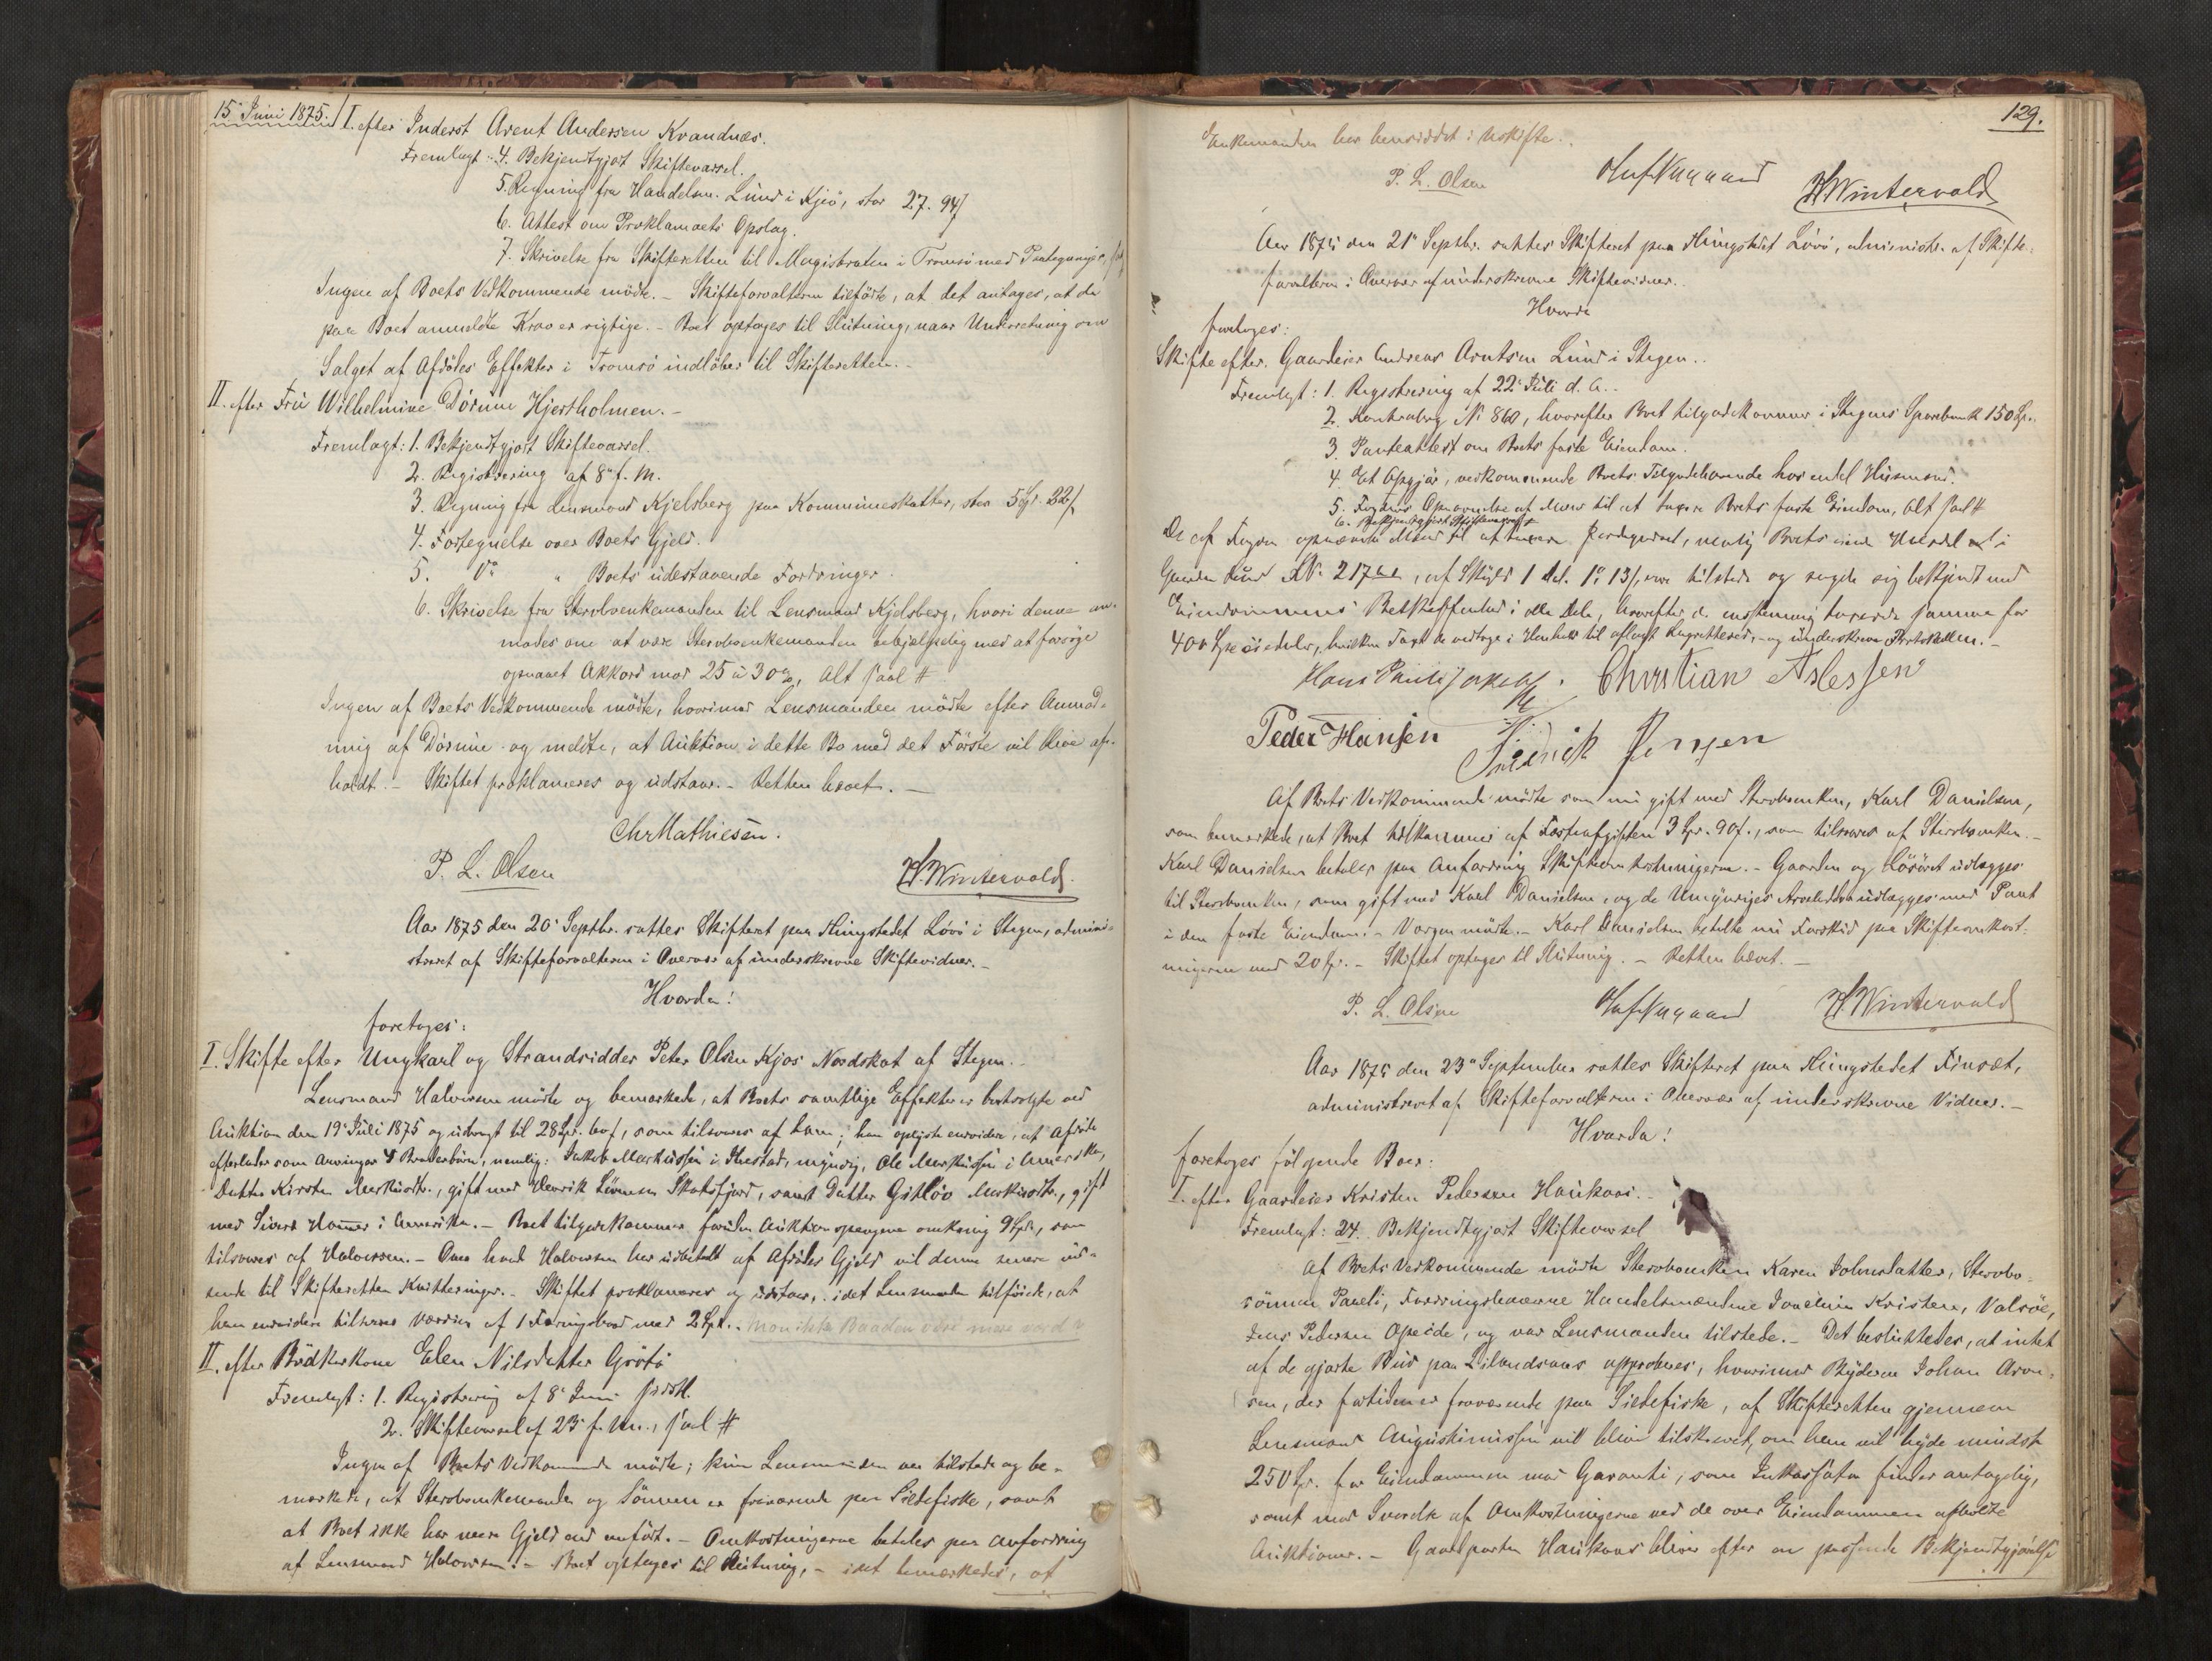 15' Juni 1875.
I. efter Inderst Arent Andersen Kvandnæs.
Fremlagt: 4. Bekjendtgjort Skiftevarsel.
5. Regning fra Handelsm. Lund i Kjeø, stor 27. 94/
6. Attest om Proklamaets Opslag.
7. Skrivelse fra Skifteretten til Magistraten i Tromsø med Paategninger,
Ingen af Boets Vedkommende mödte. - Skifteforvalteren tilförte, at det antages, at de
paa Boet anmeldte Krav er rigtige. - Boet optages til Slutning, naar Underretning om
Salget af Afdödes Effekter i Tromsö indlöber til Skifteretten. -
II. efter Fru Wilhelmine Dörum Hjertholmen. -
Fremlagt: 1. Bekjendtgjort Skiftevarsel.
2. Registrering af 8' f. M.
3. Regning fra Lensmand Kjelsberg paa Kommuneskatter, stor 5 Spd. 22/
4. Fortegnelse over Boets Gjeld.
5. Do " Boets udestaaende Fordringer.
6. Skrivelse fra Stervboenkemanden til Lensmand Kjelsberg, hvori denne an-
modes om at være Stervboenkemanden behjelpelig med at forsöge
opnaaet Akkord mod 25 à 30 %, Alt saal #
Ingen af Boets Vedkommende mödte, hvorimod Lensmanden mödte efter Anmod-
ning af Dörum og meldte, at Auktion i dette Bo med det Förste vil blive af-
holdt. - Skiftet proklameres og udstaar. - Retten hævet. -
Chr Mathiesen.
P. L. Olsen
H. Wintervold.
Aar 1875 den 20' Septbr. sattes Skifteret paa Thingstedet Lövö i Stegen, admini-
streret af Skifteforvalteren i Overvær af underskrevne Skiftevidner. -
Hvorda!
foretoges:
I. Skifte efter Ungkarl og Strandsidder Peter Olsen Kjos Nordskot af Stegen. -
Lensmand Halvorsen mödte og bemærkede, at Boets samtlige Effekter er bortsolgte ved
Auktion den 19' Juli 1875 og udbragt til 28 Spd. 60/, som tilsvares af ham; han oplyste endvidere, at Afdöde
efterlader som Arvinger 4 Broderbörn, nemlig: Jakob Markussen i, myndig, Ole Markussen i Amerika,
Datter Kirsten Markusdtr., gift med Henrik Sörensen Skotsfjord, samt Datter Gitlöv Markusdtr., gift
med Sivert Hammer i Amerika. - Boet tilgodekommer foruden Auktionspengene omkring 9 Spd., som
tilsvares af Halvorsen. - Om hvad Halvorsen har udbetalt af Afdödes Gjeld vil denne senere ind-
sende til Skifteretten Kvitteringer. - Skiftet proklameres og udstaar, idet Lensmanden tilföiede, at
han endvidere tilsvarer Værdien af 1 Færingsbaad med 2 Spd. - Mon ikke Baaden være mere værd?
II. efter Bödkerkone Elen Nilsdatter Grötö
Fremlagt: 1. Registrering af 8' Juni sidstl.
2. Skiftevarsel af 23' f. Mn., saal #
Ingen af Boets Vedkommende mödte; kun Lensmanden var tilstede og be-
mærkede, at Stervboenkemanden og Sönnen er fraværende paa Sildefiske, samt
at Boet ikke har mere Gjeld end anfört. - Omkostningerne betales paa Anfordring
af Lensmand Halvorsen. - Boet optages til Slutning, - idet bemærkedes, at
129.
Enkemanden har hensiddet i Uskifte. -
P. L. Olsen
H. Wintervold
Aar 1875 den 21' Septbr. sattes Skifteret paa Thingstedet Lövö, administr. af Skifte-
forvalteren i Overvær af underskrevne Skiftevidner. -
Hvorda
foretoges:
Skifte efter Gaardeier Andreas Arntsen Lund i Stegen. -
Fremlagt: 1. Registrering af 22' Juli d. A. -
2. Kontrabog No 860, hvorefter Boet tilgodekommer i Stegens Sparebank 150 Spd.
3. Panteattest om Boets faste Eiendom.
4. Et Opgjör, vedkommende Boets Tilgodehavende hos endel Husmænd.
5. Fogdens Opnævnelse af Mænd til at taxere Boets faste Eiendom, Alt saal #
6. Bekjendtgjort Skiftevarsel #
De af Fogden opnævnte Mænd til at taxere Jordegodset, nemlig Boets eiende Huusdel i
Gaarden Lund L.No 217, af Skyld 1 dl. 1 o: 13/, var tilstede og sagde sig bekjendt med
Eiendommens Beskaffenhed i alle Dele, hvorefter d. enstemmig taxerede samme for
400 Speciedaler, hvilken Taxt de vedtoge i Henhold til aflagt Lagretteed, og underskrev Protokollen. -
Christian Aslessen
Peder Hansen
Fredrick Jensen
Af Boets Vedkommende mödte som nu gift med Stervboenken, Karl Danielsen,
som bemærkede, at Boet tilkommer af Fæsteafgiften 3 Spd. 90/., som tilsvares af Stervboenken. -
Karl Danielsen betaler paa Anfordring Skifteomkostningerne. - Gaarden og Lösöret udlægges
til Stervboenken, som gift med Karl Danielsen, og de Umyndiges Arvelodder udlægges med Pant
i den faste Eiendom. - Værgen mödte. - Karl Danielsen betalte nu Forskud paa Skifteomkost-
ningerne med 20 Spd. - Skiftet optages til Slutning. - Retten hævet. -
P. L. Olsen
H. Wintervold
Aar 1875 den 23' September sattes Skifteret paa Thingstedet Finsæt,
administreret af Skifteforvalteren i Overvær af underskrevne Vidner. -
Hvorda!
foretoges fölgende Boer:
I. efter Gaardeier Kristen Pedersen Haukaas. -
Fremlagt: 24. Bekjendtgjort Skiftevarsel
Af Boets Vedkommende mödte Stervboenken Karen Johnsdatter, Stervbo-
sönnen Pareli, Fordringshaverne Handelsmændene Joachim Kristen, Valsöe,
Jens Pedersen Opeide, og var Lensmanden tilstede. - Det besluttedes, at intet
af de gjorte Bud paa Lilandsaas approberes, hvorimod Byderen Johan Aron-
sen, der fortiden er fraværende paa Sildefiske, af Skifteretten gjennem
Lensmand Augustinussen vil blive tilskrevet, om han vil byde mindst
250 Spd. for Eiendommen mod Garanti, som Inkassator finder antagelig,
samt mod Svarelse af Omkostningerne ved de over Eiendommen afholdte
Auktioner. - Gaardparten Haukaas bliver efter en passende Bekjendtgjörelse